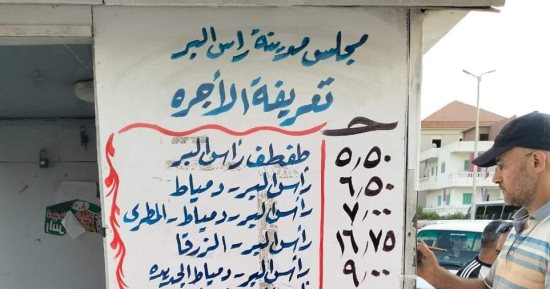 مجلس مدينة راس البر
تعريفة الأجره
حـ
طفطف رأس البر ٥٫٥٠
رأس البر - دمياط ٦٫٥٠
رأس البر - دمياط - المطرى ٧٫٠٠
رأس البر - الزرقا ١٦٫٧٥
رأس البر - دمياط الجديده ٩٫٠٠